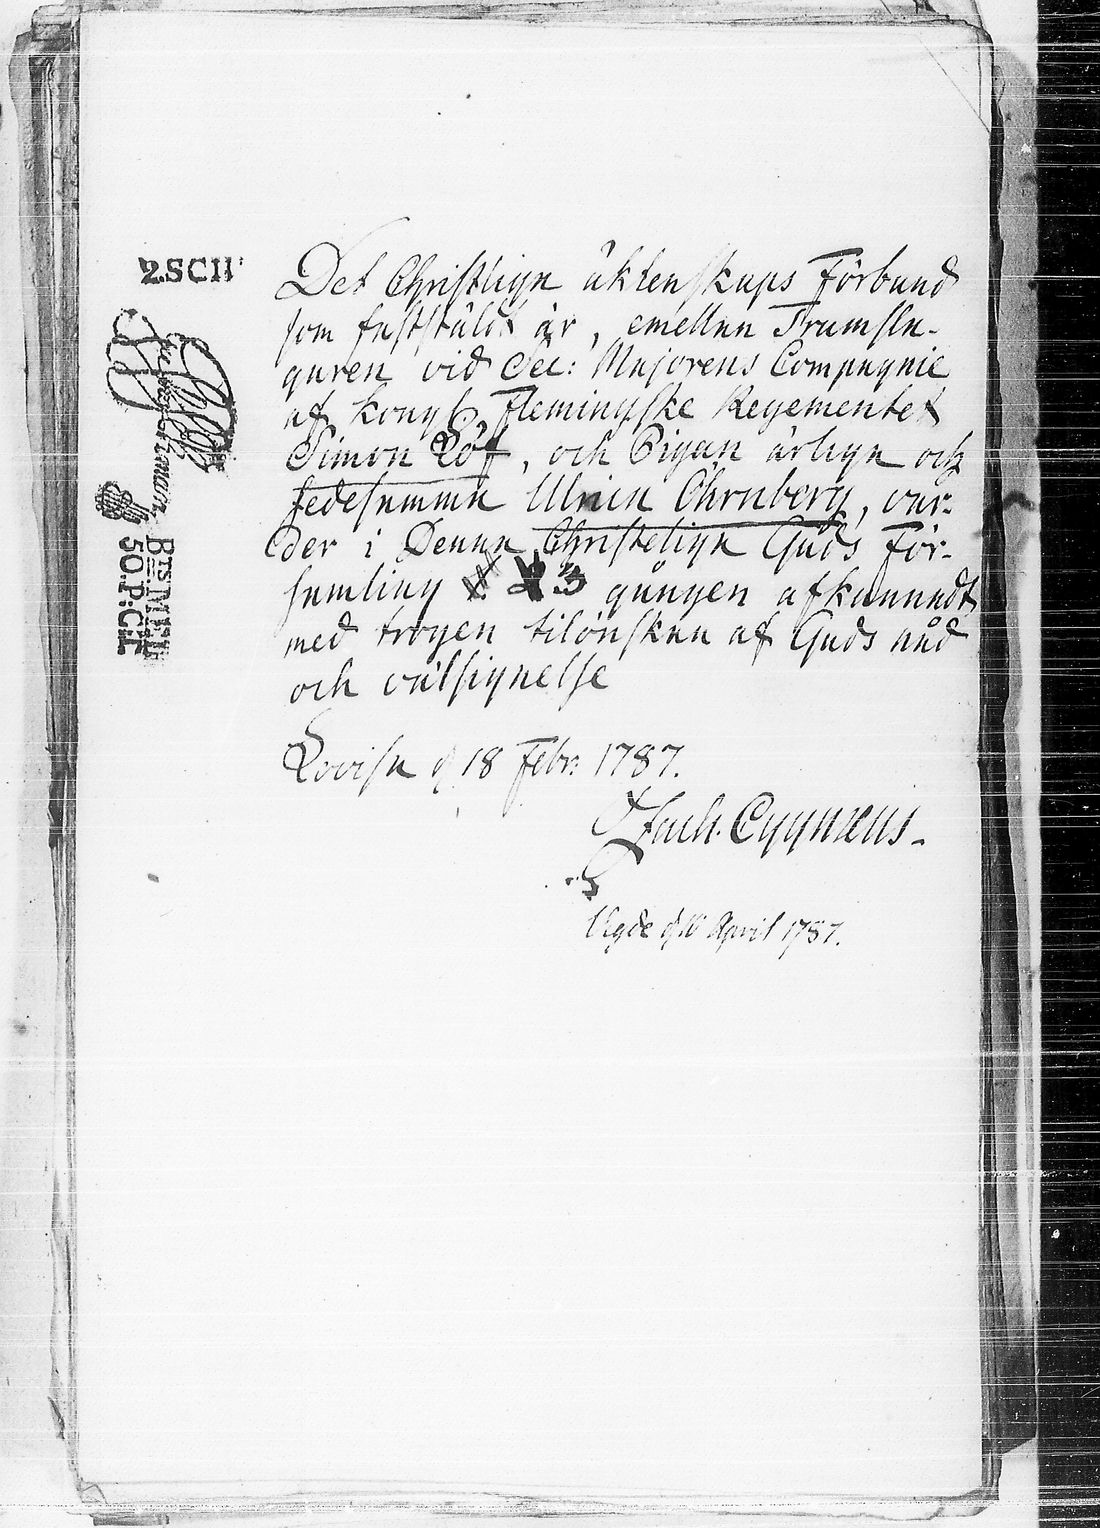 2.SCH
Det Christliga äktenskaps Förbund
som fastställdt är, emellan Trumsla-
garen vid Sec: Majorens Compagnie
af Kongl. Flemingske Regementet
Simon Löf, och Pigan ärliga och
sedesamma Ulrica Öhrnberg, var-
der i Denna Christeliga Guds För-
samling 3 gången afkunnadt,
med trogen tilönskan af Guds nåd
och välsignelse
Lovisa d 18 Febr: 1787.
Zach. Cygnæus.
Vigde d 10 April 1787.
BTS. MELL
50.P:CT.